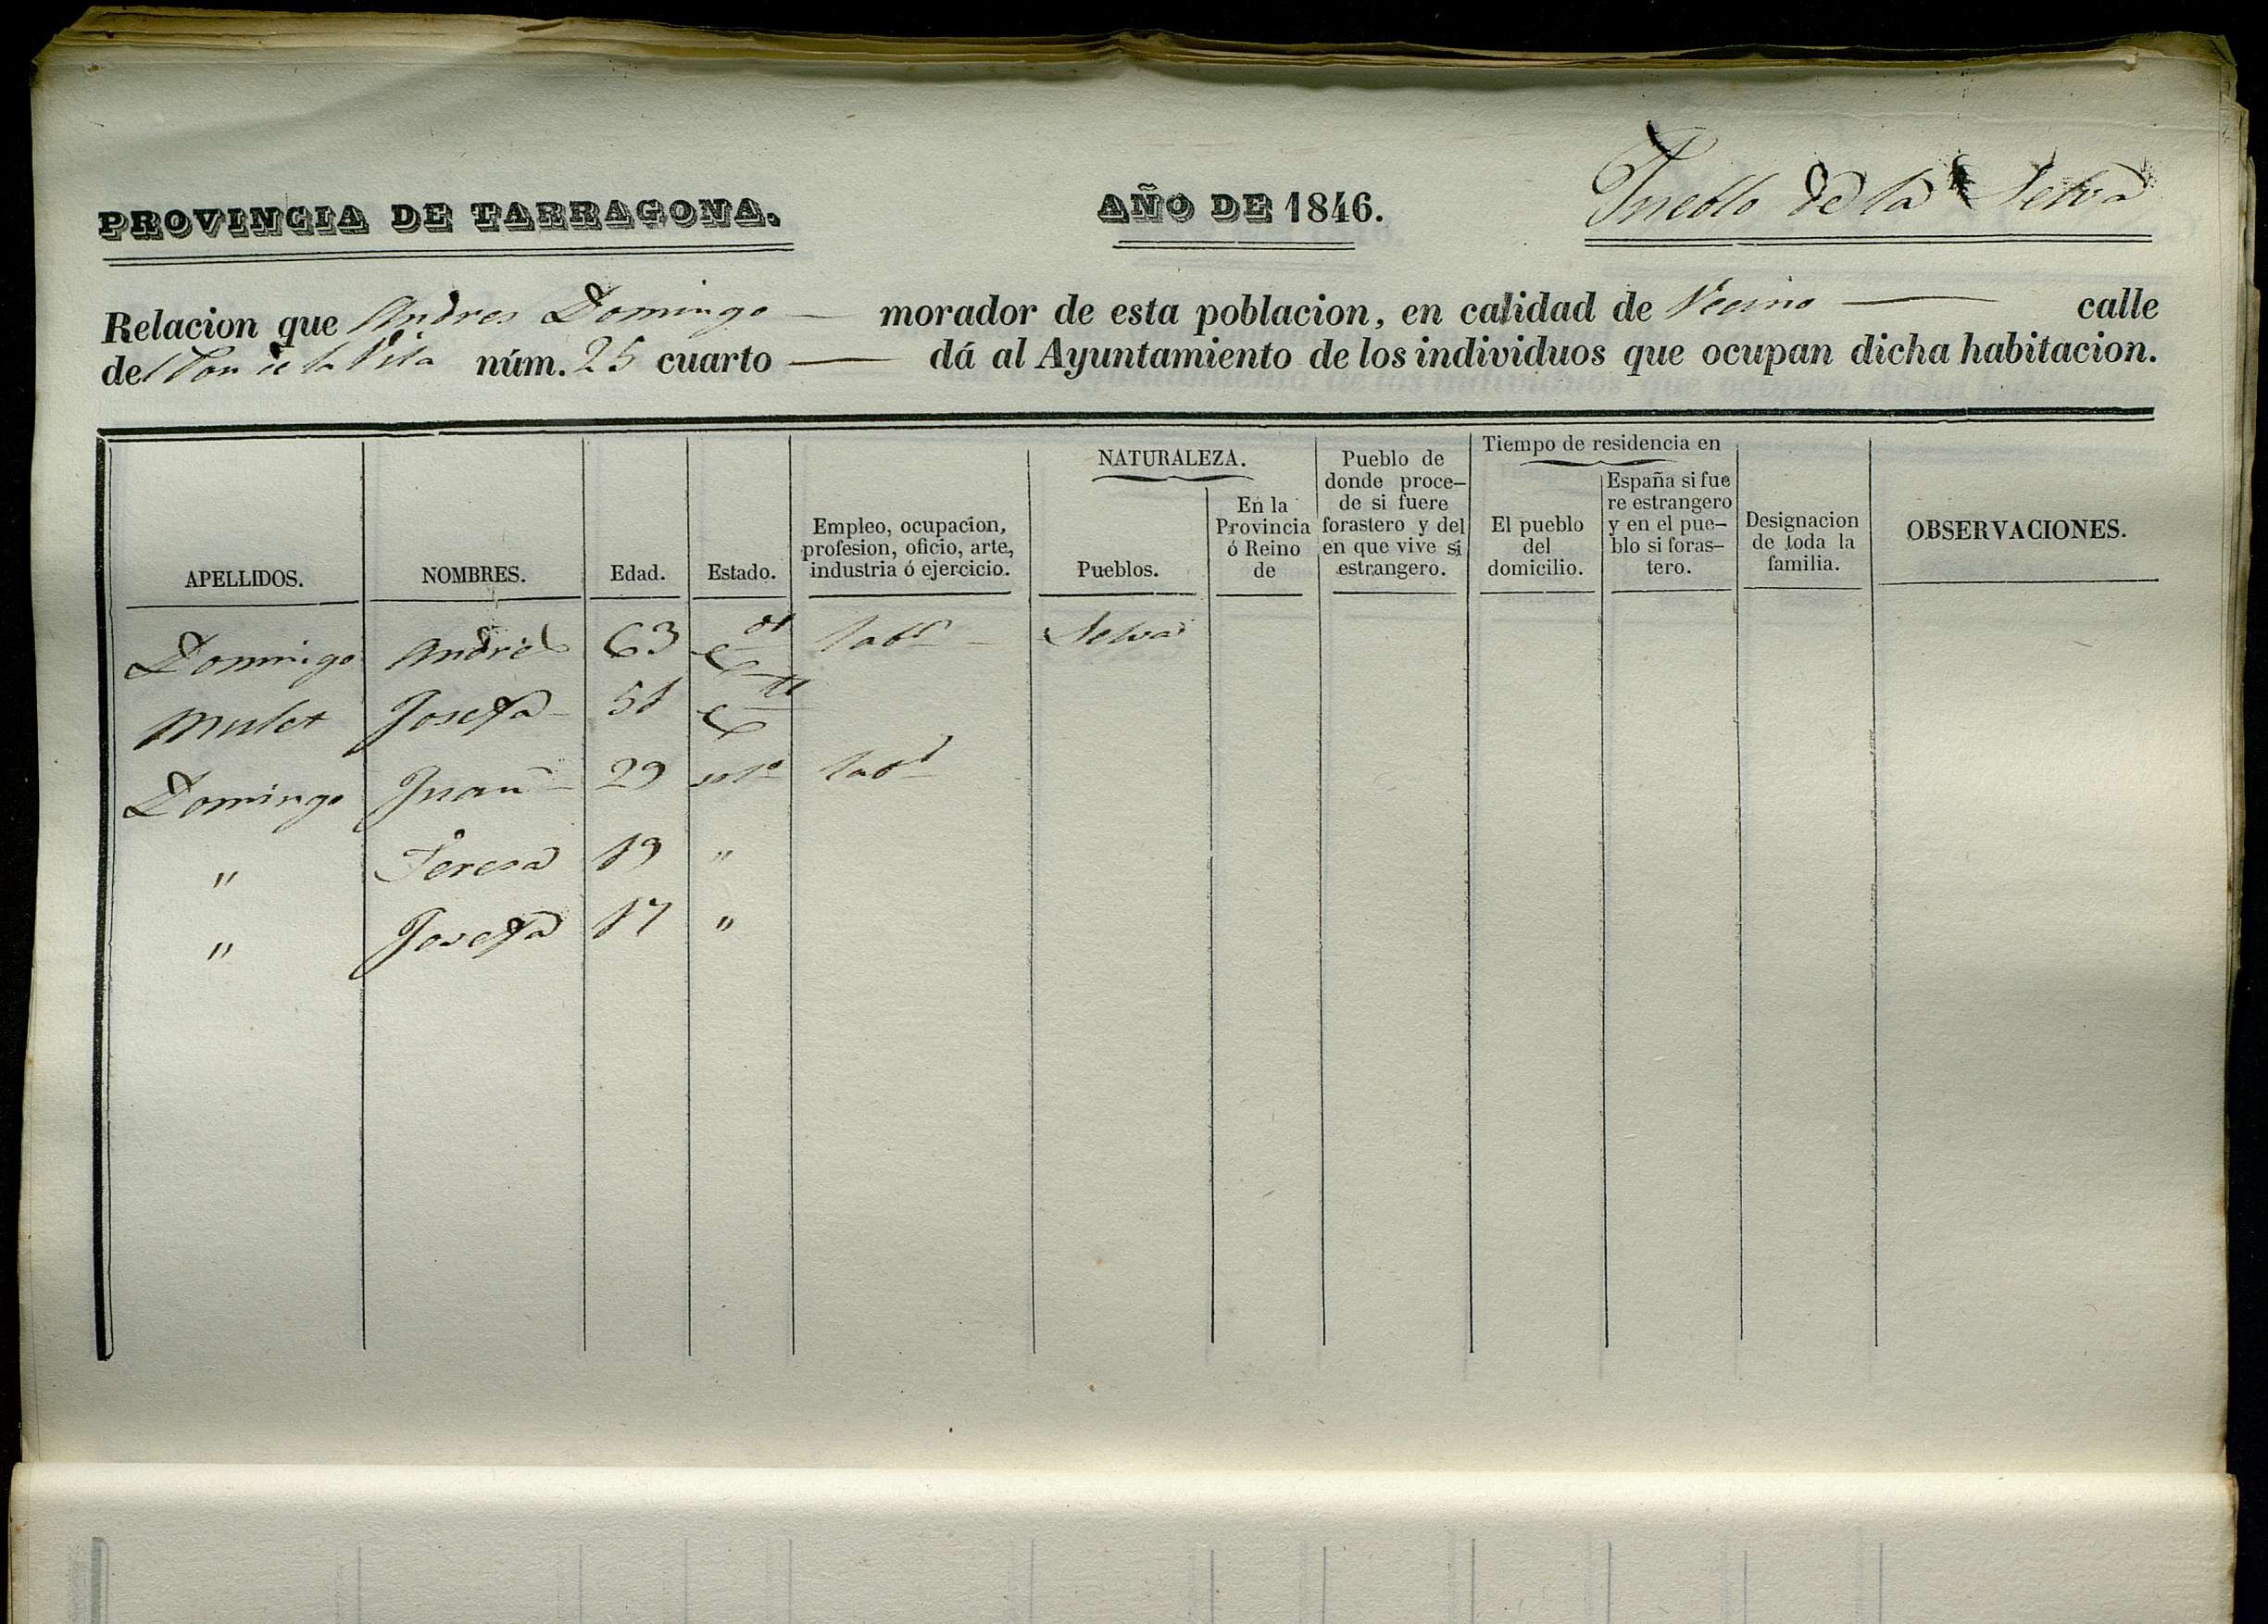 PROVINCIA DE TARRAGONA. AÑO DE 1846. Pueblo de la Selva
Relacion que Andres Domingo — morador de esta poblacion, en calidad de Vecino — calle
del de la Vila núm. 25 cuarto — dá al Ayuntamiento de los individuos que ocupan dicha habitacion.
APELLIDOS.
NOMBRES.
Edad.
Estado.
Empleo, ocupacion,
profesion, oficio, arte,
industria ó ejercicio.
NATURALEZA.
Pueblos.
En la
Provincia
ó Reino
de
Pueblo de
donde proce-
de si fuere
forastero y del
en que vive si
estrangero.
Tiempo de residencia en
El pueblo
del
domicilio.
España si fue
re estrangero
y en el pue-
blo si foras-
tero.
Designacion
de toda la
familia.
OBSERVACIONES.
Domingo Andres 63 labr Selva
Mulet Josefa 51
Domingo Juan 29 solo labr
" Teresa 19 "
" Josefa 17 "